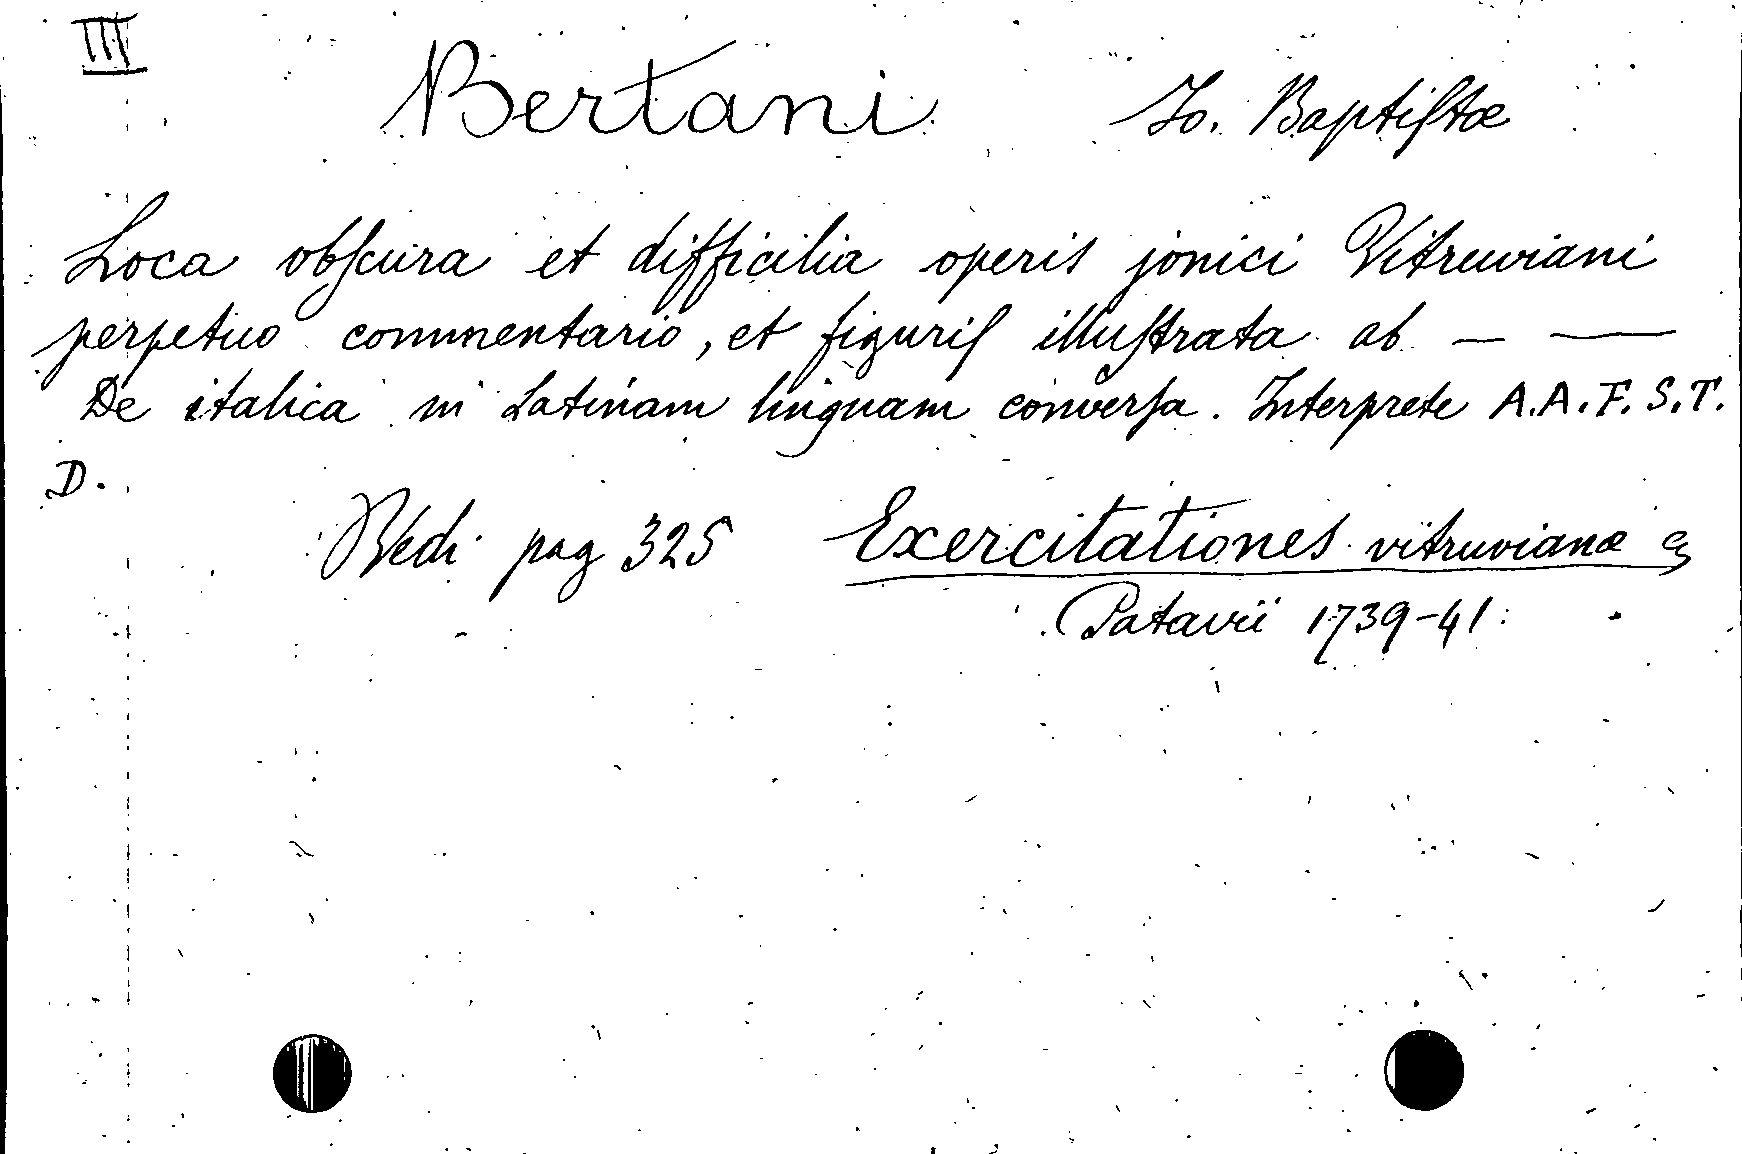 III
Bertani Io. Baptiſtæ
Loca obſcura et difficilia operis jonici Vitruviani
perpetuo commentario, et figuriſ illuſtrata ab — —
De italica in Latinam linguam converſa. Interprete A.A.F.S.T.
D.
Vedi pag 325 Exercitationes vitruvianæ
Patavii 1739-41.